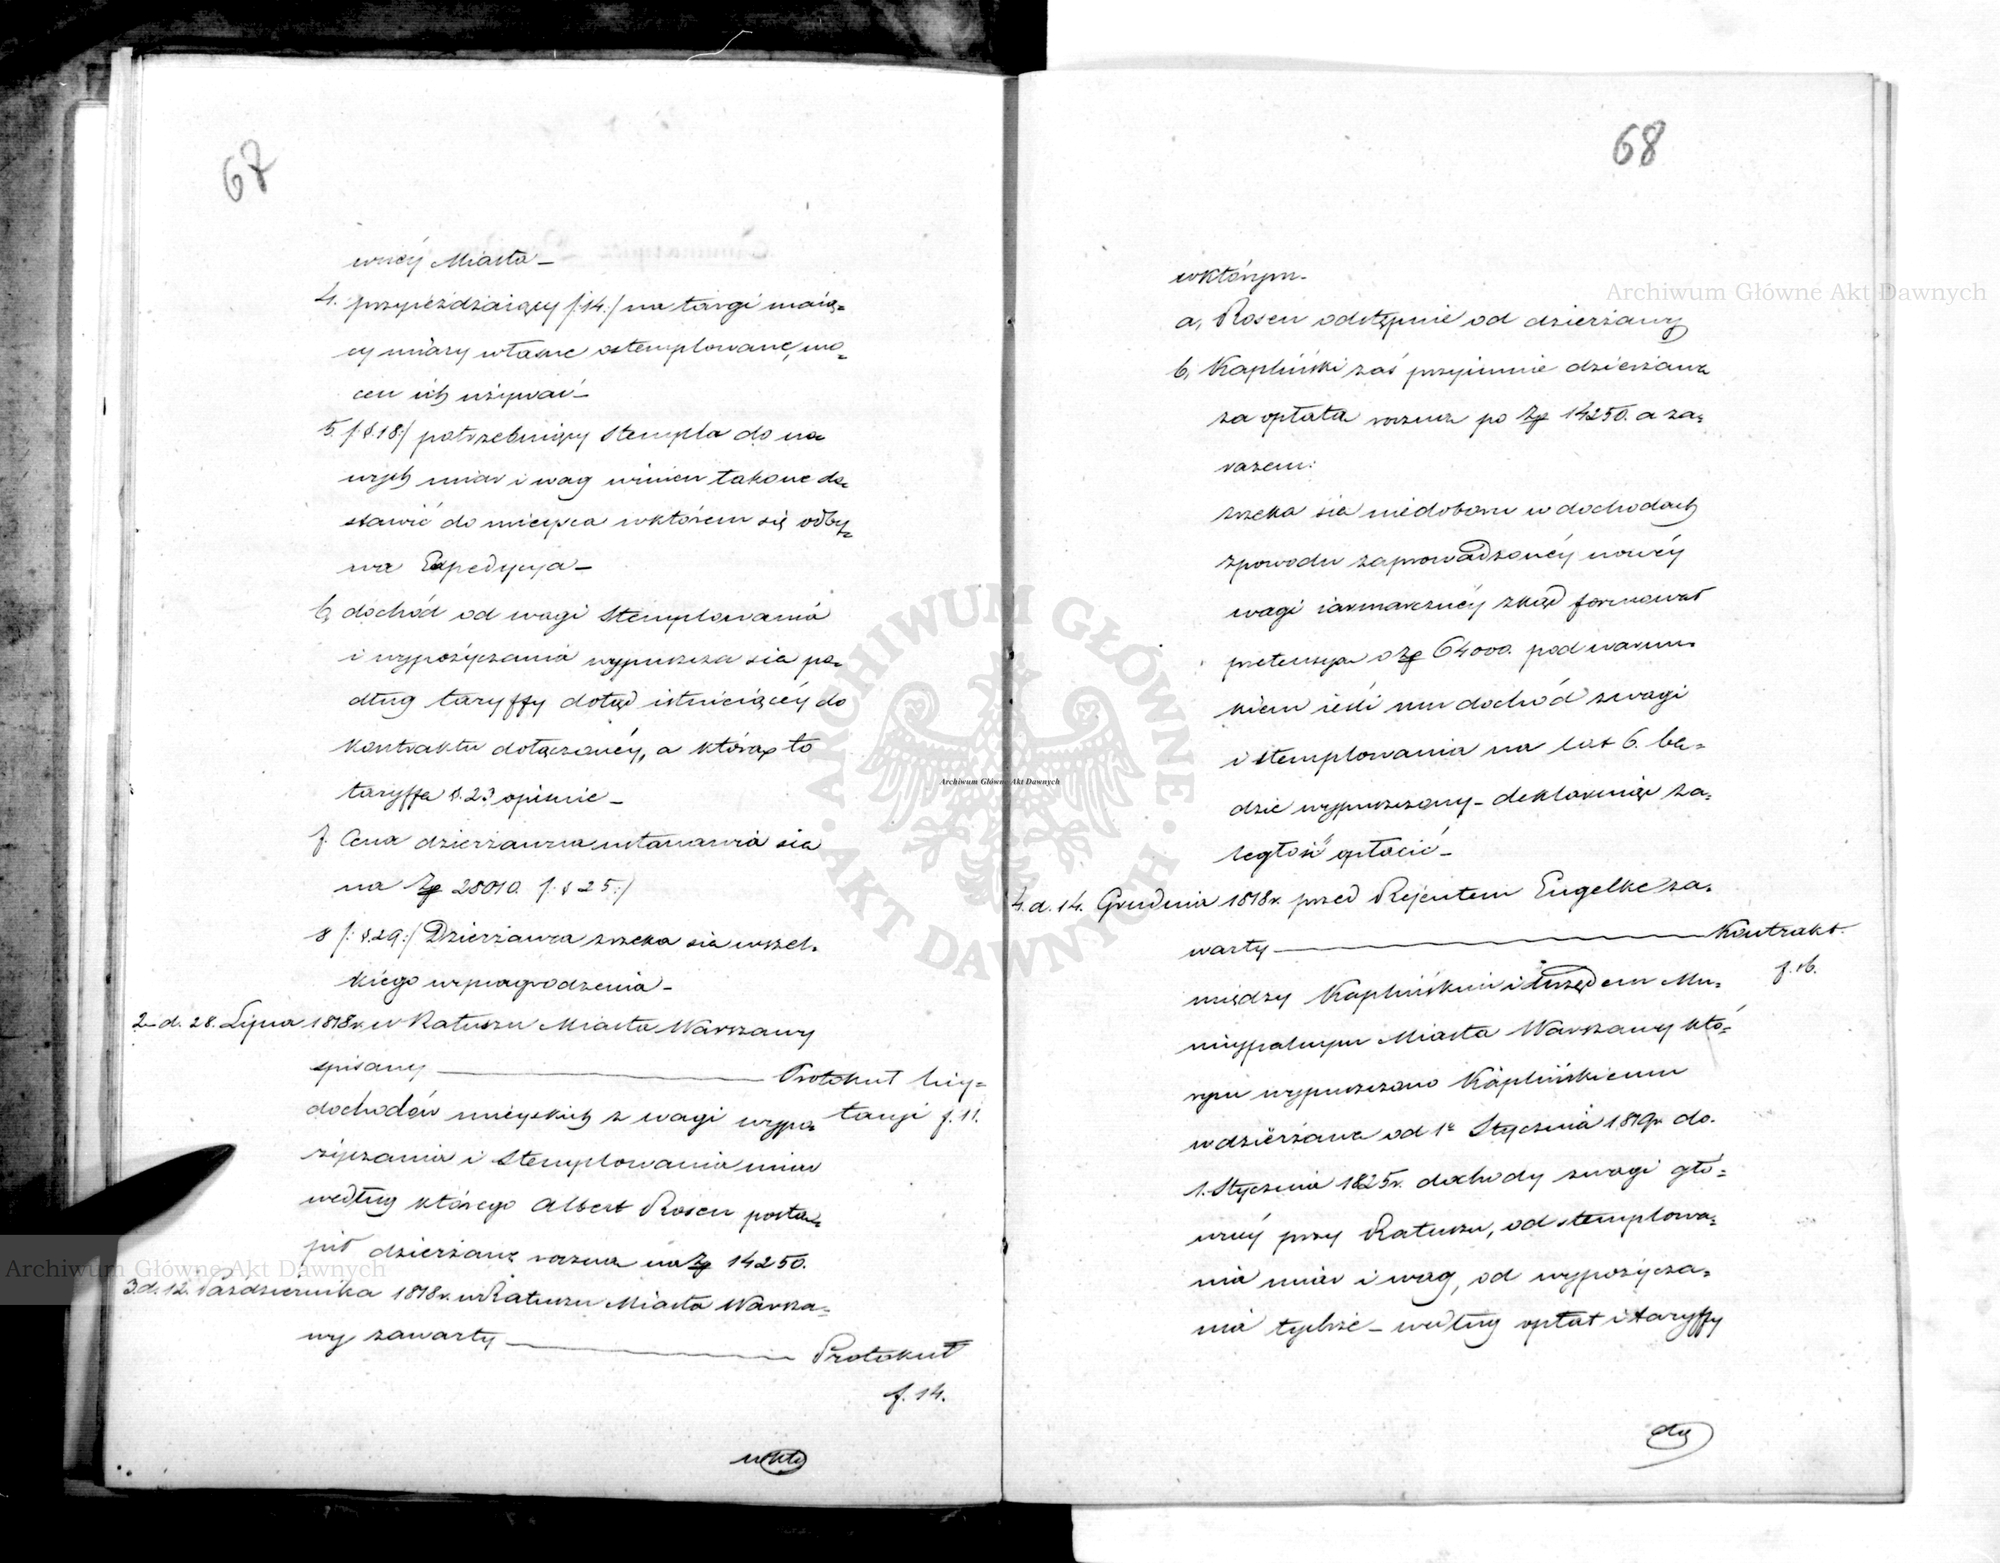 67
wnéy Miasta_
4. przyieżdżaiący /:14:/ na targi maią=
cy miary własne ostemplowane, mo=
cen ich używać_
5. /:§.18:/ potrzebuiący Stempla do no
wych miar i wag winien takowe do=
stawić do mieysca w którem się odby=
wa Expedycya_
6, dochód od wagi Stemplowania
i wypożyczania wypuszcza sie po=
dług taryffy dotąd istnieiącéy do
kontraktu dołączonéy, a która to
taryffa §.23 opiewa_
7. Cena dzierżawna ustanawia sie
na Zp 28010. /:§ 25:/
8 /:§.29:/ Dzierżawca zrzeka sie wszel=
kiego wynagrodzenia_
2_d. 28. Lipca 1818r. w Ratuszu Miasta Warszawy
spisany ___ Protokuł licy=
dochodów mieyskich z wagi wypo= tacyi f. 11.
życzania i Stemplowania miar
według którego Albert Rosen posta=
pił dzierżawę roczna na Zp 14250.
3.d. 12. Października 1818r. w Ratuszu Miasta Warsza=
wy zawarty ___ Protokuł
f. 14.
w któ
68
w którym.
a, Rosen odstępuie od dzierżawy
b, Kapliński zaś przyimuie dzierżawe
za opłata roczna po Zp 14250. a za=
razem:
zrzeka sie niedoboru w dochodach
zpowodu zaprowadzonéy nowéy
wagi iarmarcznéy zkąd formował
pretensye o Zp 64000. pod warun=
kiem ieśli mu dochód z wagi
i stemplowania na lat 6. be=
dzie wypuszczony_ deklaruiąc za=
ległość opłacić_
4.d. 14. Grudnia 1818r. przed Rejentem Engelke za=
warty ___ Kontrakt.
między Kaplińskim i Urzędem Mu= f. 16.
nicypalnym Miasta Warszawy któ=
rym wypuszczono Kaplińskiemu
w dzierżawe od 1o Stycznia 1819r. do.
1. Stycznia 1825r. dochody z wagi głó=
wnéy przy Ratuszu, od stemplowa=
nia miar i wag, od wypożycza=
nia tychże_ według opłat i taryffy
Archiwum Główne Akt Dawnych
Archiwum Główne Akt Dawnych
Archiwum Główne Akt Dawnych
ARCHIWUM GŁÓWNE · AKT DAWNYCH ·